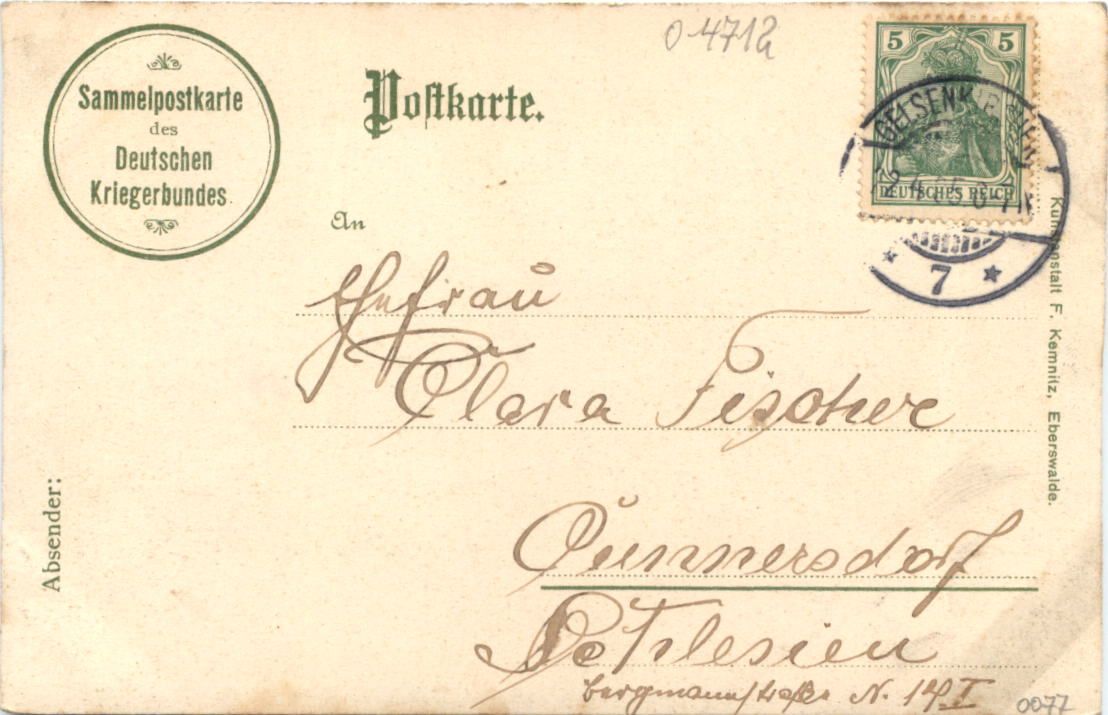 0-4712
Sammelpostkarte
des
Deutschen
Kriegerbundes
Postkarte.
5 5
DEUTSCHES REICH
GELSENKIRCHEN
7
An
Ehefrau
Clara Fischer
Cunnersdorf
Schlesien
Bergmannstraße N. 14 I
Absender:
Kunstanstalt F. Kemnitz, Eberswalde.
0077